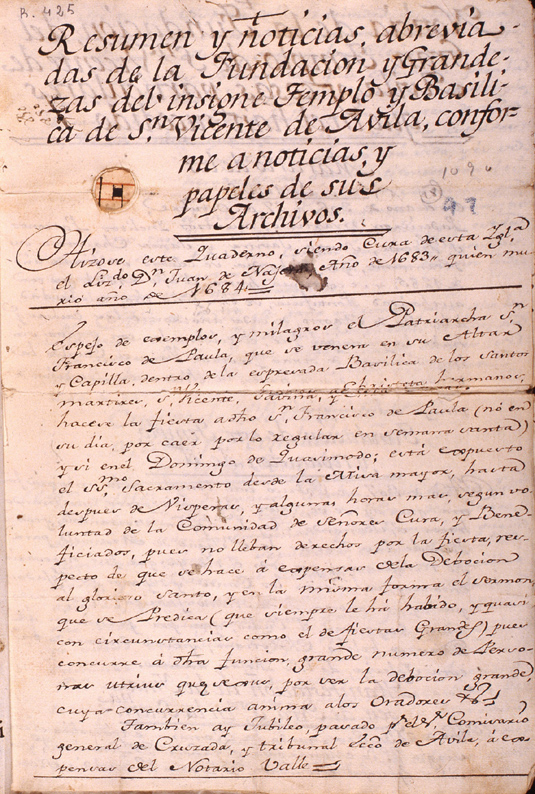 R. 425
Resumen y noticias, abrevia-
das de la Fundacion y Grande-
zas del insigne Templo y Basili-
ca de S.n Vicente de Avila, confor-
me a noticias, y
papeles de sus
Archivos.
1096
97
Hizose este Quaderno, siendo Cura de esta Igl.a
el Liz.do D.n Juan de Año de 1683,, quien mu-
rió año de 1684
Espejo de exemplos, y milagros el Patriarcha S.n
Francisco de Paula, que se venera en su Altar
y Capilla, dentro de la espresada Basilica de los Santos
martires, S.n Vicente, Savina, y Christeta hermanos,
hacese la fiesta a dho S.n Francisco de Paula (nó en
su dia, por caer por lo regular en semana santa)
y si en el Domingo de Quasimodo; está expuesto
el SS.mo Sacramento desde la Misa mayor, hasta
despues de Visperas, y algunas horas mas, segun vo-
luntad de la Comunidad de Señores Cura, y Bene-
ficiados, pues no lleban derechos por la fiesta, res-
pecto de que se hace á expensas de la Debocion
al glorioso Santo, y en la misma forma el sermon,
que se Predica (que siempre le há habido, y quasi
con circunstancias como el de fiestas Grandes) pues
concurre, á dha funcion, grande numero de Perso-
nas utrius que sexus, por ver la debocion grande,
cuya concurrencia anima a los Oradores
Tambien ay Jubileo, pasado p.r el S.r Comisario
general de Cruzada, y tribunal Ecco de Avila, á ex-
pensas del Notario Valle